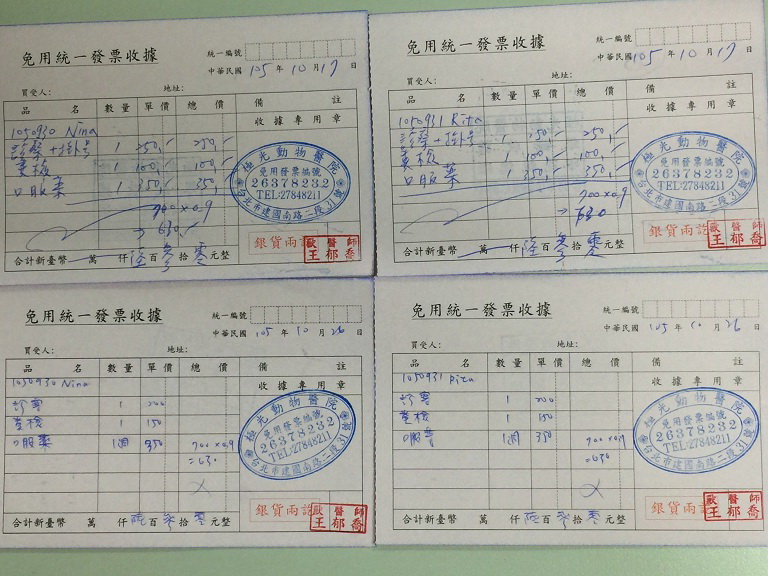 免用統一發票收據
統一編號
中華民國 105 年 10 月 17 日
買受人：
地址：
品 名 數量 單價 總價 備 註
收據專用章
1050930 Nina
診察+掛号 1 250,- 250,-
糞檢 1 100,- 100,-
口服藥 1 350,- 350,-
700×0.9
→ 630,-
極光動物醫院
免用發票編號
26378232
TEL:27848211
台北市建國南路二段31號
銀貨兩訖
獸醫師
王郁喬
合計新臺幣 萬 仟陸百參拾零元整
免用統一發票收據
統一編號
中華民國 105 年 10 月 17 日
買受人：
地址：
品 名 數量 單價 總價 備 註
收據專用章
1050931 Rita
診察+掛号 1 250,- 250,-
糞檢 1 100,- 100,-
口服藥 1 350,- 350,-
700×0.9
→ 630
極光動物醫院
免用發票編號
26378232
TEL:27848211
台北市建國南路二段31號
銀貨兩訖
獸醫師
王郁喬
合計新臺幣 萬 仟陸百參拾零元整
免用統一發票收據
統一編號
中華民國 105 年 10 月 26 日
買受人：
地址：
品 名 數量 單價 總價 備 註
收據專用章
1050930 Nina
1 200
糞檢 1 150
口服藥 1週 350 700×0.9
=630
極光動物醫院
免用發票編號
26378232
TEL:27848211
台北市建國南路二段31號
銀貨兩訖
獸醫師
王郁喬
合計新臺幣 萬 仟陸百參拾零元整
免用統一發票收據
統一編號
中華民國 105 年 10 月 26 日
買受人：
地址：
品 名 數量 單價 總價 備 註
收據專用章
1050931 Rita
1 200
糞檢 1 150
口服藥 1週 350 700×0.9
=630
極光動物醫院
免用發票編號
26378232
TEL:27848211
台北市建國南路二段31號
銀貨兩訖
獸醫師
王郁喬
合計新臺幣 萬 仟陸百參拾零元整